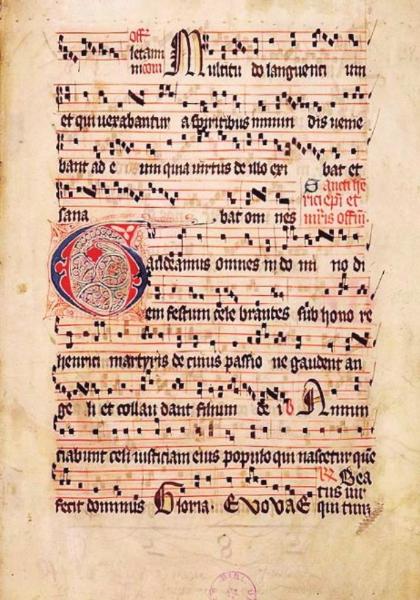 off
letam
Multitu do languenti um
m com
et qui vexabantur a spiritibus inmun dis venie
bant ad e um quia virtus de illo exi bat et
sana bat om nes
Sancti he
rici epi et
mris offm.
Gaudeamus omnes in do mi no di
em festum cele brantes sub hono re
henrici martyris de cuius passio ne gaudent an
ge li et collau dant filium de i v Annun
ciabunt celi iusticiam eius populo qui nascetur que
fecit dominus Gloria. EVOVAE
Bea
tus vir
qui tim